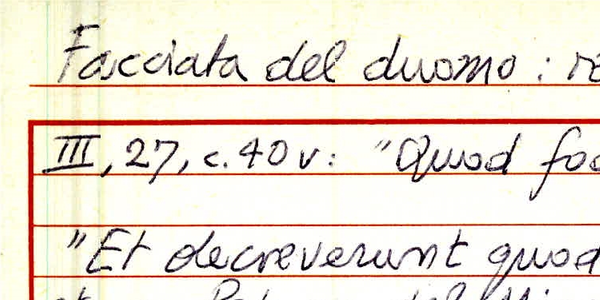 Facciata del duomo :
III, 27, c. 40 v: "Quod
"Et decreverunt quod